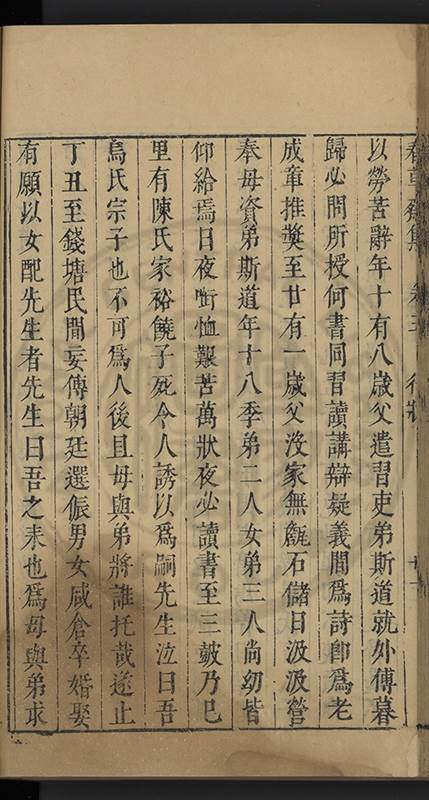 春草齋集 卷三 行狀 十一
以勞苦辭年十有八歲父遣習吏弟斯道就外傅暮
歸必問所授何書同習讀講辯疑義間爲詩卽爲老
成章推奬至廿有一歲父沒家無甔石儲日汲汲營
奉母資弟斯道年十八季弟二人女弟三人尚幼皆
仰給焉日夜啣恤艱苦萬狀夜必讀書至三皷乃已
里有陳氏家裕饒子死令人誘以爲嗣先生泣曰吾
烏氏宗子也不可爲人後且母與弟將誰托哉遂止
丁丑至錢塘民間妄傳朝廷選倀男女咸倉卒婚娶
有願以女配先生者先生曰吾之来也爲母與弟求